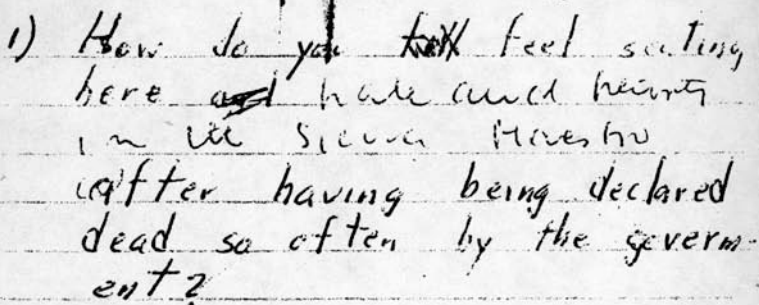 1) How do you feel seating
here hale and hearty
in the Sierra Maestra
after having being declared
dead so often by the goverm-
ent?